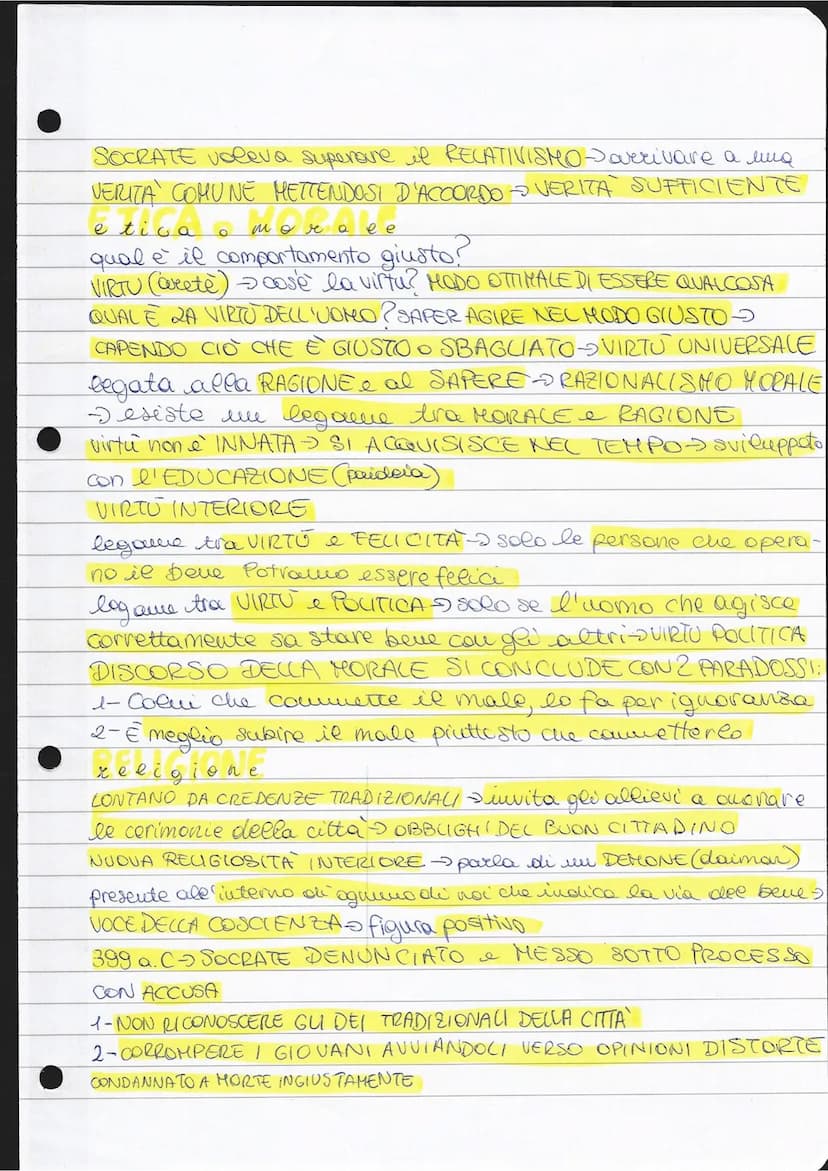 SOCRATE voleva superare il RELATIVISMO → arrivare a una
VERITÀ COMUNE METTENDOSI D'ACCORDO → VERITÀ SUFFICIENTE
ETICA o MORALE
etica o morale
qual è il comportamento giusto?
VIRTÙ (aretè) → cos'è la virtù? MODO OTTIMALE DI ESSERE QUALCOSA
QUAL È LA VIRTÙ DELL'UOMO? SAPER AGIRE NEL MODO GIUSTO →
CAPENDO CIÒ CHE È GIUSTO o SBAGLIATO → VIRTÙ UNIVERSALE
legata alla RAGIONE e al SAPERE → RAZIONALISMO MORALE
→ esiste un legame tra MORALE e RAGIONE
virtù non è INNATA → SI ACQUISISCE NEL TEMPO → sviluppata
con l'EDUCAZIONE (paideia)
VIRTÙ INTERIORE
legame tra VIRTÙ e FELICITÀ → solo le persone che opera-
no il bene potranno essere felici
legame tra VIRTÙ e POLITICA → solo se l'uomo che agisce
correttamente sa stare bene con gli altri → VIRTÙ POLITICA
DISCORSO DELLA MORALE SI CONCLUDE CON 2 PARADOSSI:
1- Colui che commette il male, lo fa per ignoranza
2- È meglio subire il male piuttosto che commetterlo
RELIGIONE
religione
LONTANO DA CREDENZE TRADIZIONALI → invita gli allievi a onorare
le cerimonie della città → OBBLIGHI DEL BUON CITTADINO
NUOVA RELIGIOSITÀ INTERIORE → parla di un DEMONE (daimon)
presente all'interno di ognuno di noi che indica la via del bene →
VOCE DELLA COSCIENZA → figura positivo
399 a.C → SOCRATE DENUNCIATO e MESSO SOTTO PROCESSO
CON ACCUSA
1- NON RICONOSCERE GLI DEI TRADIZIONALI DELLA CITTÀ
2- CORROMPERE I GIOVANI AVVIANDOLI VERSO OPINIONI DISTORTE
CONDANNATO A MORTE INGIUSTAMENTE